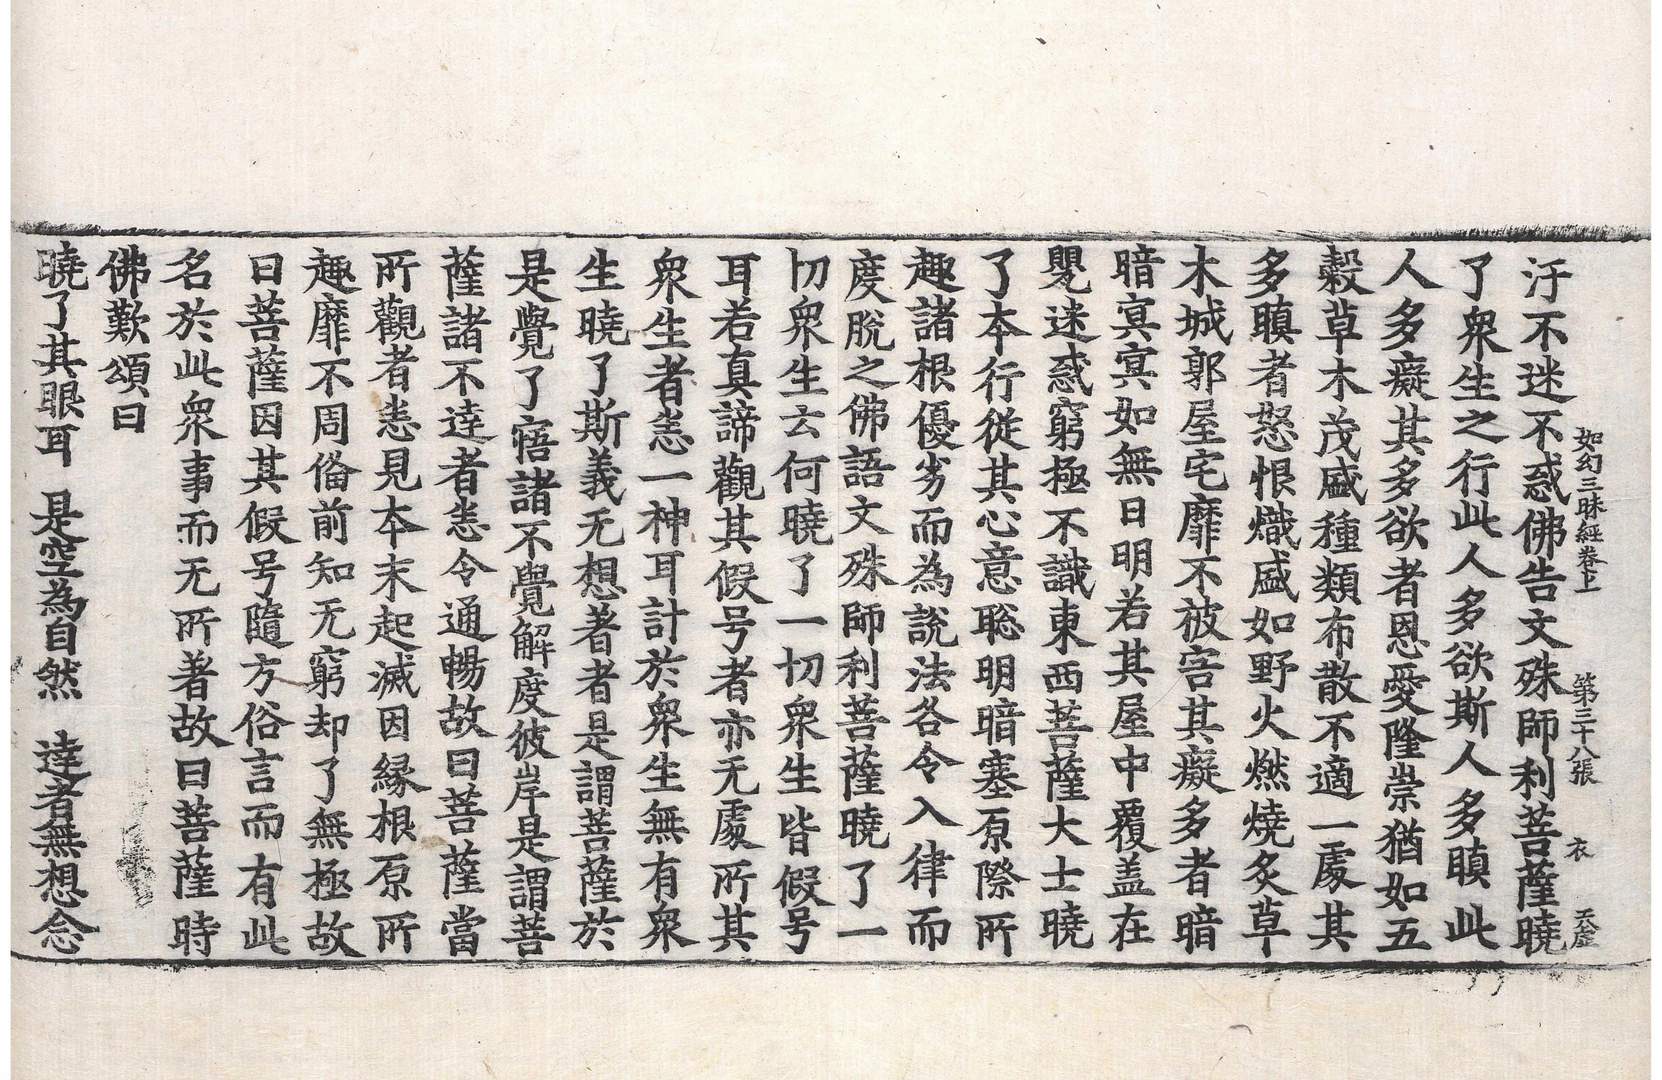 如幻三昧經卷上 第三十八張 衣
汙不迷不惑佛告文殊師利菩薩曉
了衆生之行此人多欲斯人多瞋此
人多癡其多欲者恩愛隆崇猶如五
穀草木茂盛種類布散不適一處其
多瞋者怒恨熾盛如野火燃燒炙草
木城郭屋宅靡不被害其癡多者暗
暗冥冥如無日明若其屋中覆盖在
甖迷惑窮極不識東西菩薩大士曉
了本行從其心意聡明暗塞原際所
趣諸根優劣而為說法各令入律而
度脫之佛語文殊師利菩薩曉了一
切衆生云何曉了一切衆生皆假号
耳若真諦觀其假号者亦无處所其
衆生者恚一神耳計於衆生無有衆
生曉了斯義无想著者是謂菩薩於
是覺了寤諸不覺解度彼岸是謂菩
薩諸不達者恚令通暢故曰菩薩當
所觀者恚見本末起滅因緣根原所
趣靡不周備前知无窮却了無極故
曰菩薩因其假号隨方俗言而有此
名於此衆事而无所著故曰菩薩時
佛歎頌曰
曉了其眼耳 是空為自然 達者無想念